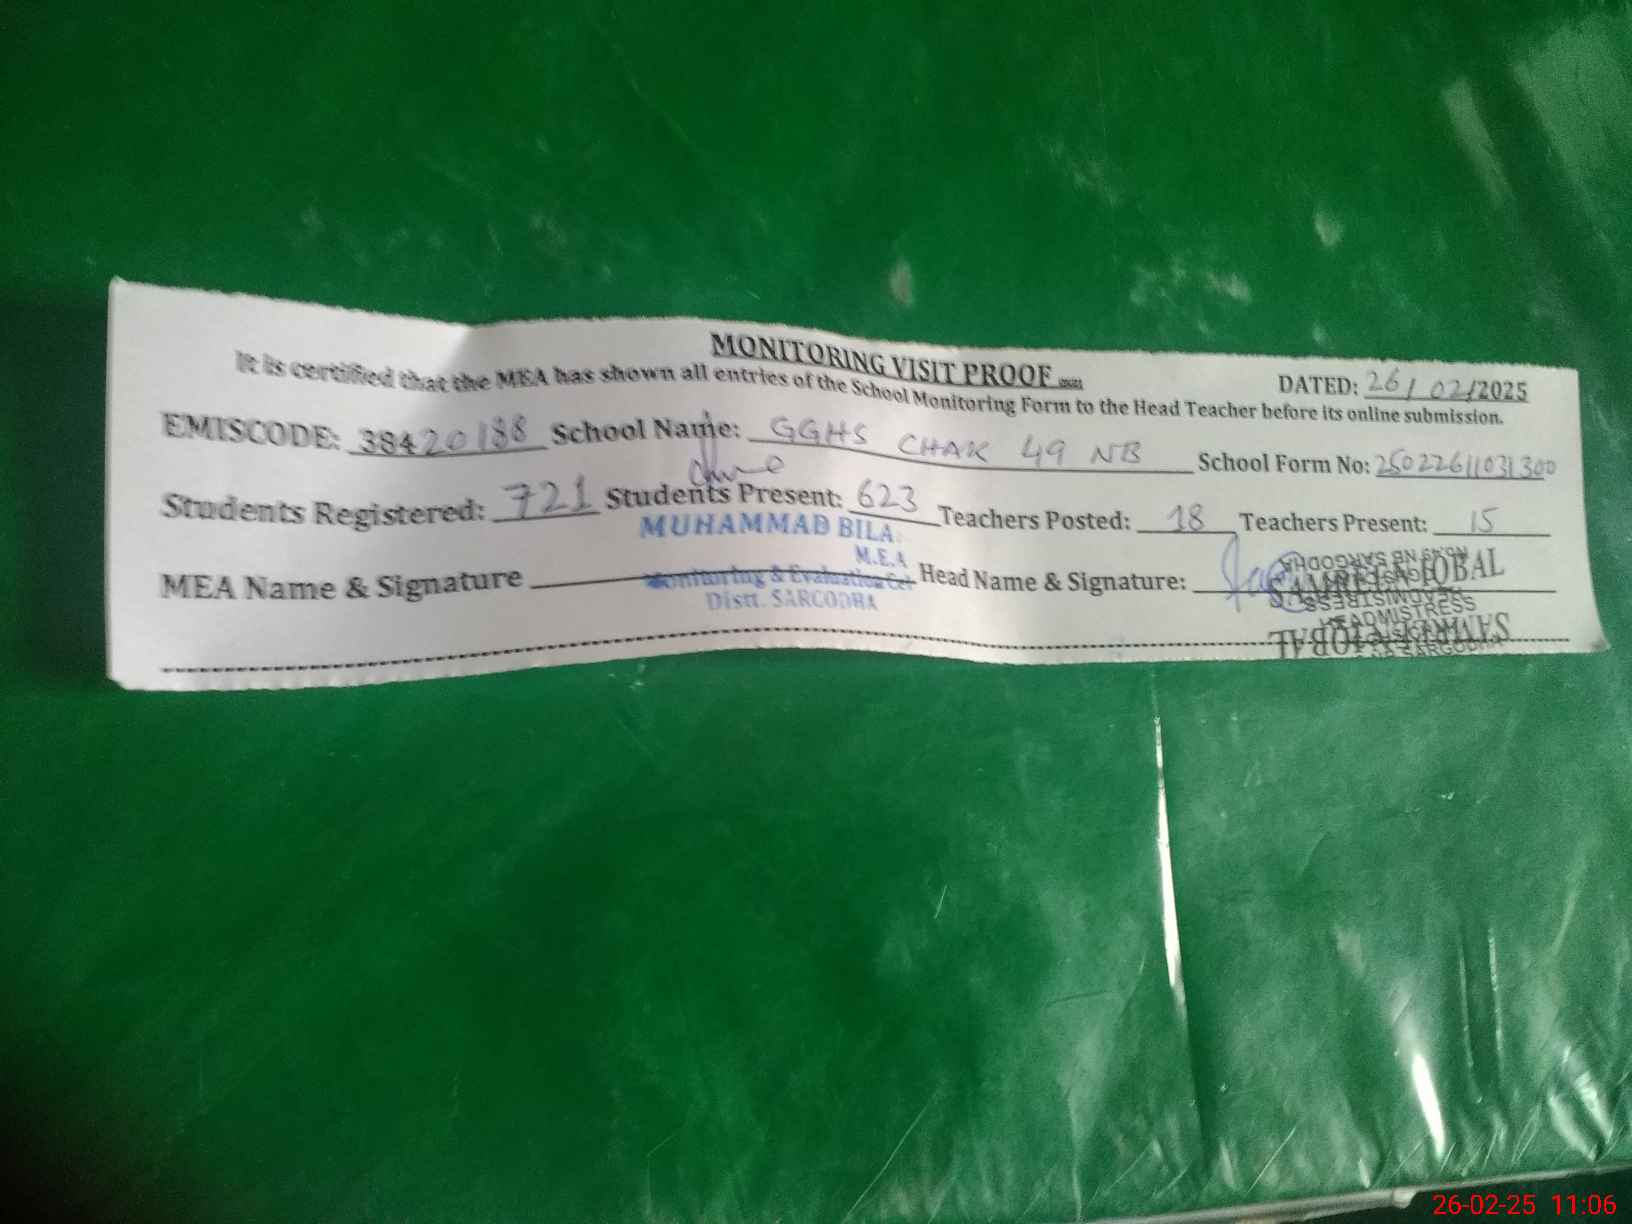 MONITORING VISIT PROOF
DATED: 26/02/2025
It is certified that the MEA has shown all entries of the School Monitoring Form to the Head Teacher before its online submission.
EMISCODE: 38420188 School Name: GGHS CHAK 49 NB School Form No: 25022611031300
Students Registered: 721 Students Present: 623 Teachers Posted: 18 Teachers Present: 15
MUHAMMAD BILA
M.E.A
MEA Name & Signature Head Name & Signature:
Monitoring & Evaluation Cel
Distt. SARGODHA
HEADMISTRESS
26-02-25 11:06